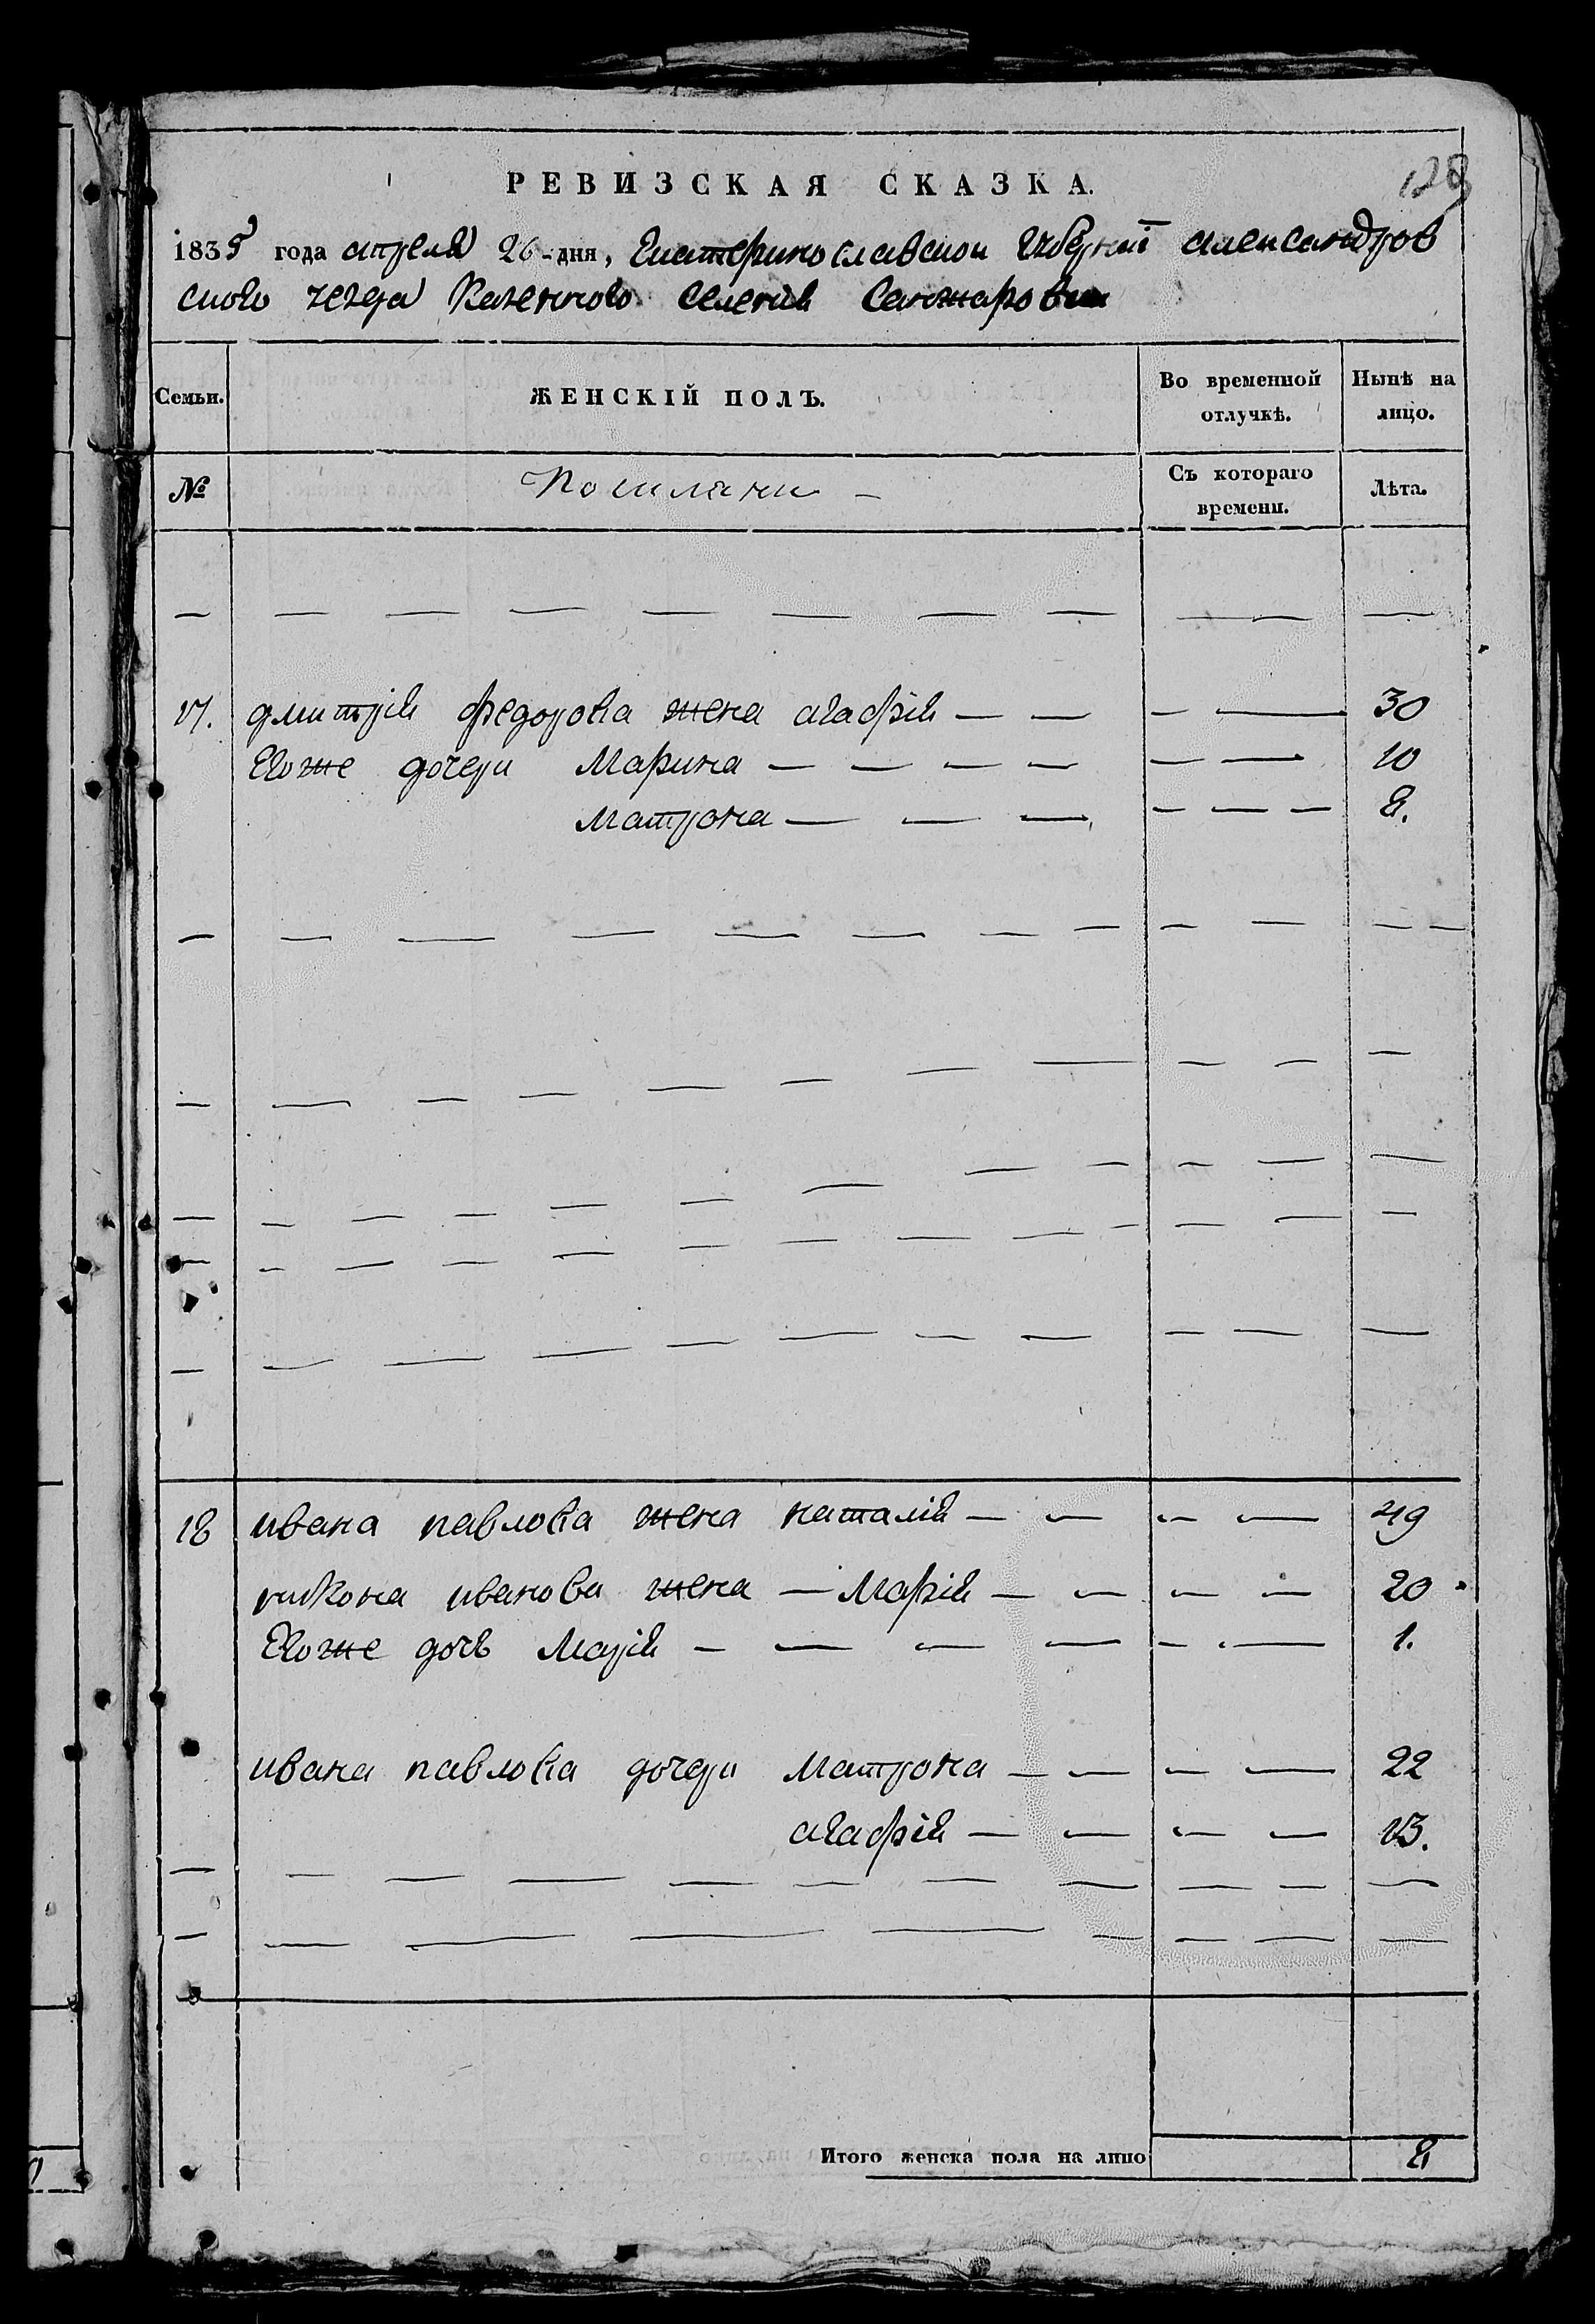 РЕВИЗСКАЯ СКАЗКА.
128
1835 года апреля 26 дня, Екатеринославской Губернии александров
ского уезда Казенного селения Санжаровки
Семьи.
ЖЕНСКІЙ ПОЛЪ.
Во временной отлучкѣ.
Нынѣ на лицо.
№
Поселяни
Съ котораго времени.
Лѣта.
17. дмитрія федорова жена агафія 30
Егоже дочери Марина 10
Матрона 8.
18 ивана павлова жена наталія 49
никона иванова жена Марія 20
Егоже дочь Марія 1.
ивана павлова дочери Матрона 22
агафія 13.
Итого женска пола на лицо 8